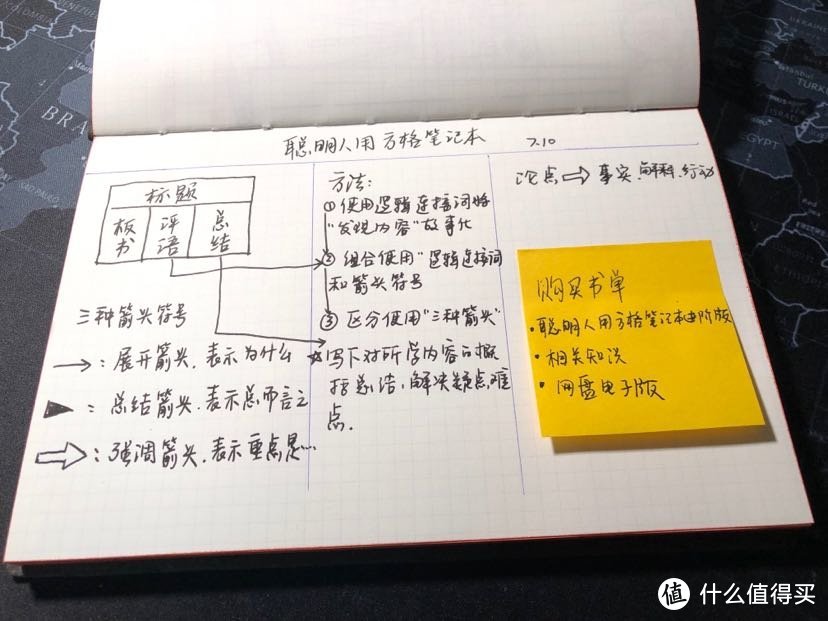 聪明人用方格笔记本 7.10
标题
板书
评语
总结
三种箭头符号
→：展开箭头.表示为什么
▶：总结箭头.表示总而言之
⇨：强调箭头.表示重点是…
方法：
①使用逻辑连接词将
"发现内容"故事化
②组合使用"逻辑连接词
和箭头符号
③区分使用"三种箭头"
☆写下对所学内容的概
括总结,解决疑点,难
点.
论点⇨事实.解释.行动
购买书单
·聪明人用方格笔记本进阶版
·相关知识
·网盘电子版
BRA
EGYPT
TURK
值 什么值得买